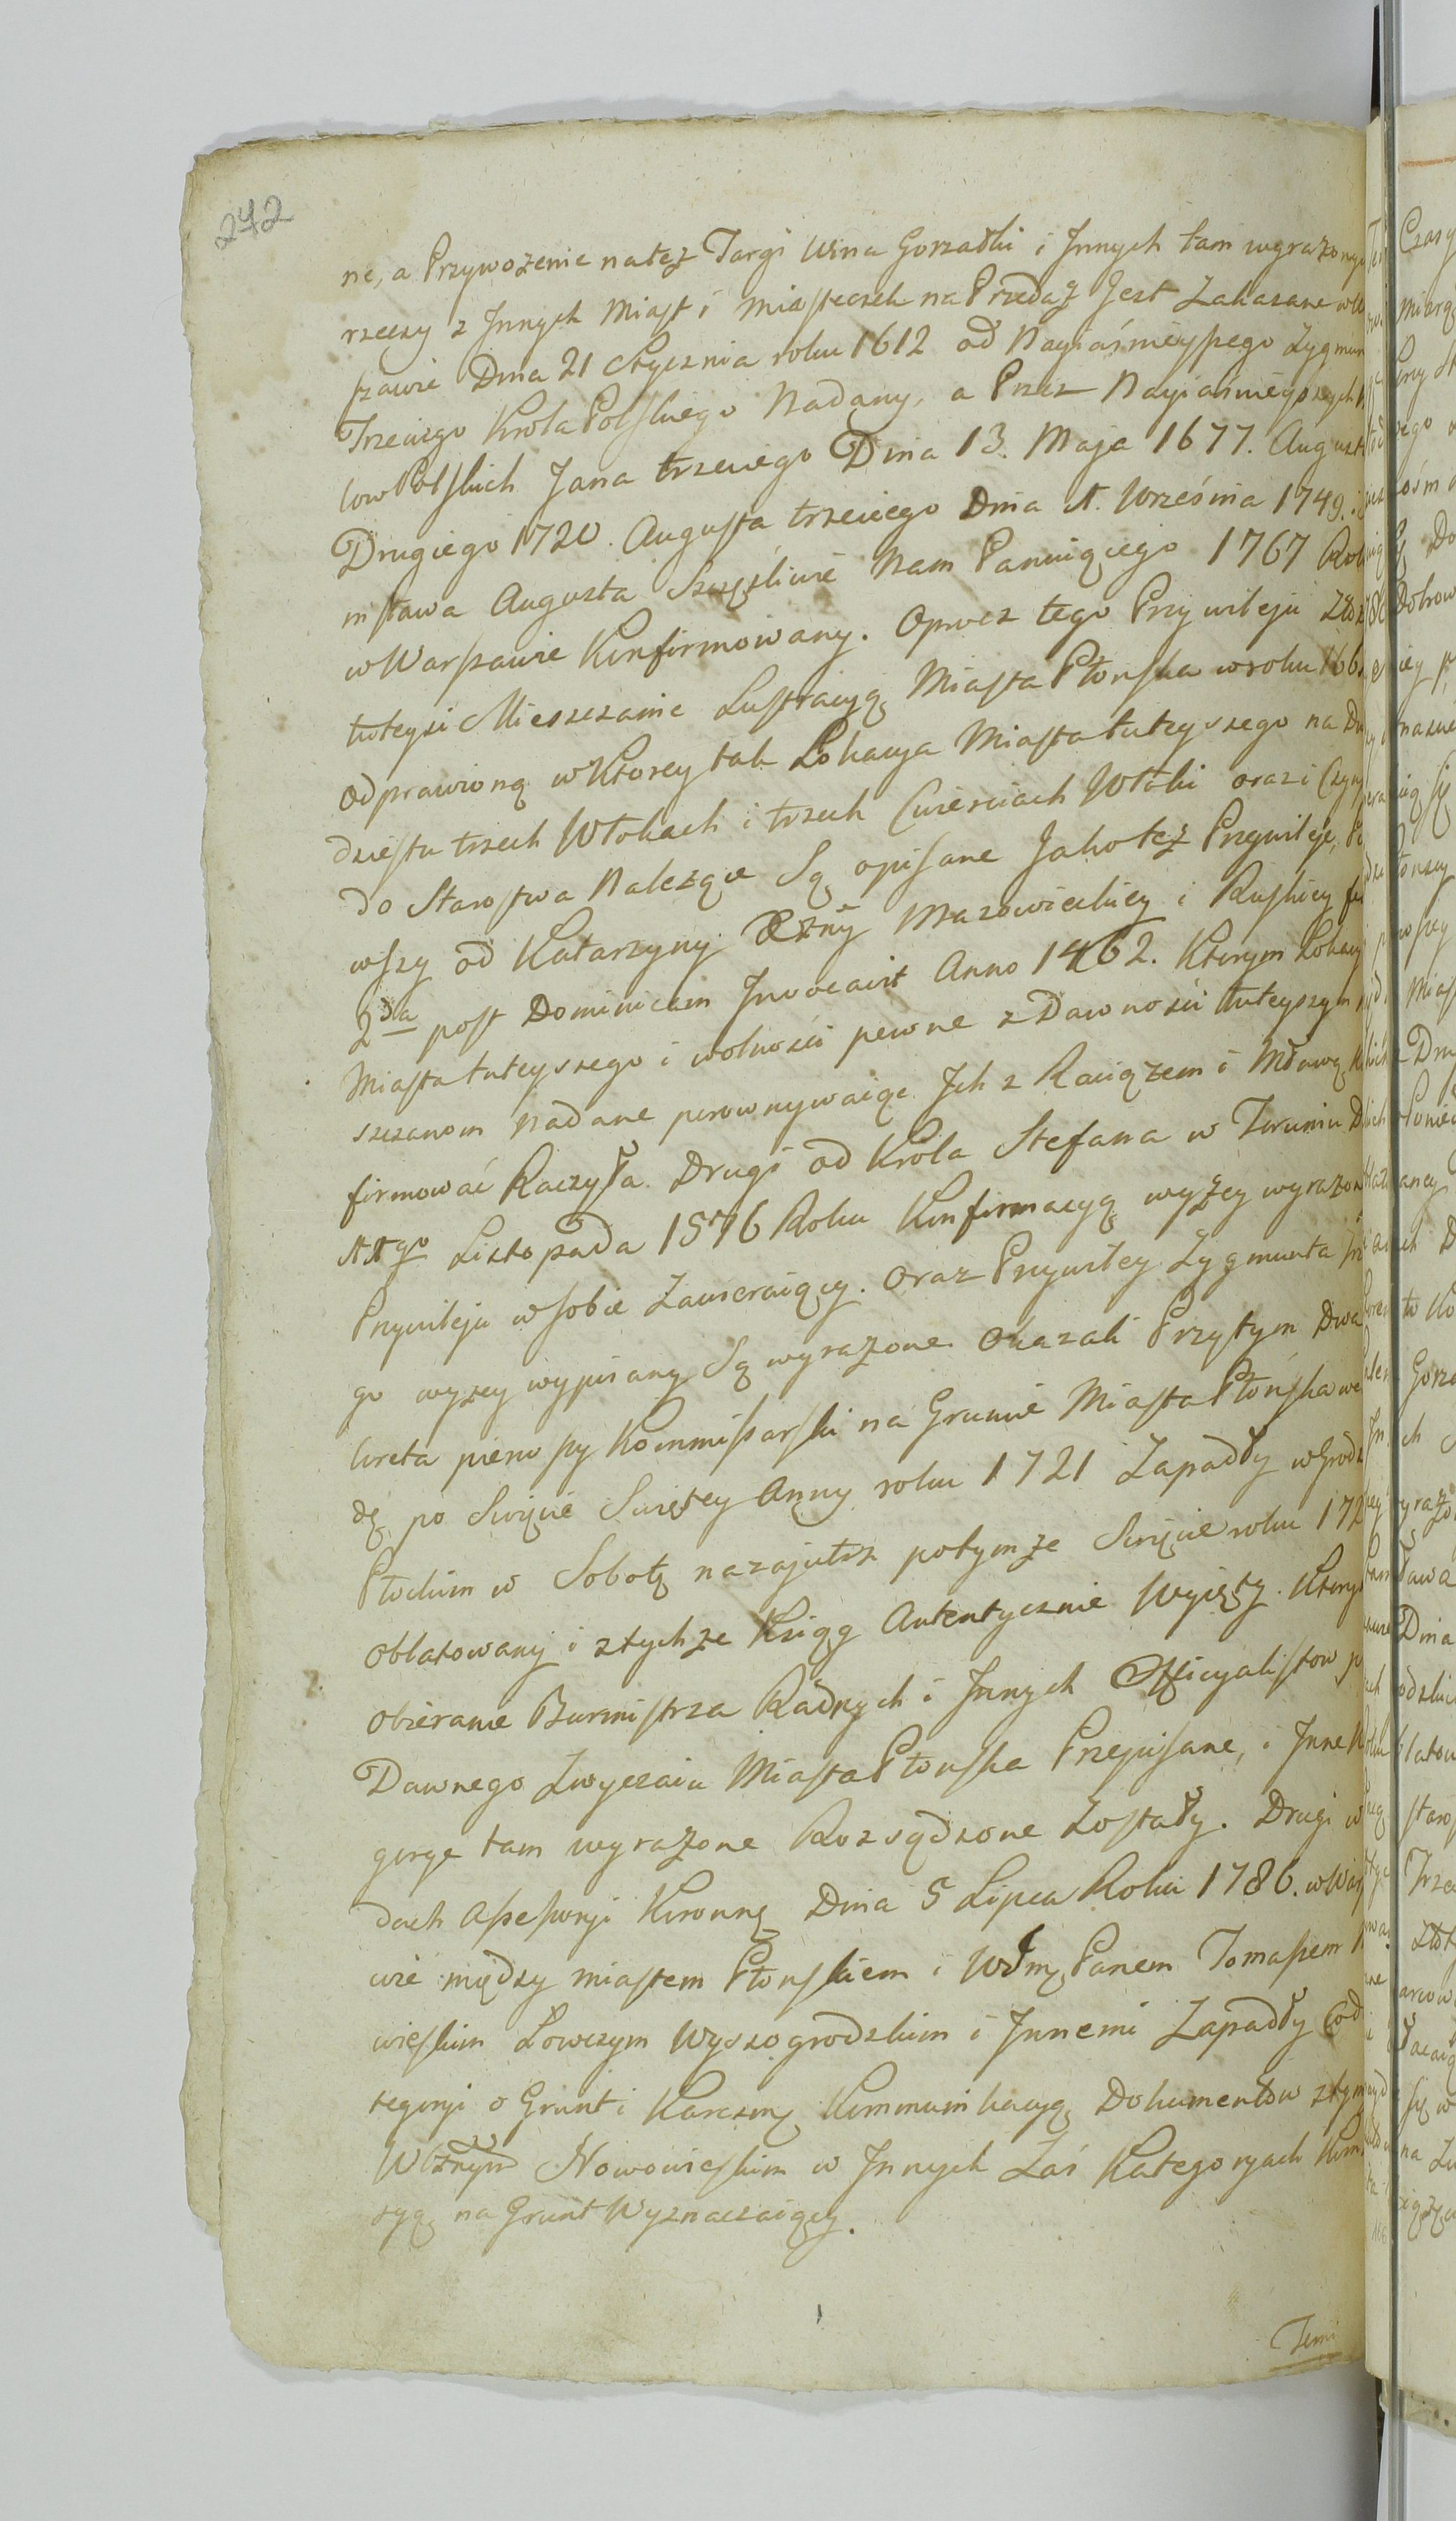 242
ne, a Przywożenie na też Targi Wina Gorzałki i Innych tam wyrażonyc
rzeczy z Innych Miast i miasteczek na Przedaż Jest Zakazane w
szawie Dnia 21 Stycznia roku 1612 od Nayiaśnieyszego Zygmun
Trzeciego Krola Polskiego Nadany, a Przez Nayiaśnieyszych
low Polskich Jana trzeciego Dnia 13. Maja 1677. August
Drugiego 1720. Augusta trzeciego Dnia 11. Września 1749. i
nisława Augusta Szczęśliwie Nam Panuiącego 1767 Rok
w Warszawie Konfirmowany. Oprocz tego Przywileju Złoż
tuteysi Mieszczanie Lustracyą Miasta Płonska w roku 166
odprawioną w Ktorey tak Lokacya Miasta tuteyszego na Dw
dziestu trzech Włokach i trzech Cwierciach Włoki oraz i Czyn
do Starostwa Należące Są opisane Jako też Przywileje, Pi
wszy od Katarzyny Xżny Mazowieckiey i Ruskiey fe
2da post Dominicam Invocavit Anno 1462. Ktorym Lokacy
Miasta tuteyszego i wolności pewne z Dawności tuteyszym
szczanom Nadane porownywaiąc Ich z Raciążem i Mławą K
firmować Raczyła. Drugi od Krola Stefana w Toruniu D
11go Listopada 1576 Roku Konfirmacyą wyżey wyrażon
Przywileju w sobie Zawieraiący. Oraz Przywiley Zygmunta Trz
go wyżey wypisany Są wyrażone. Okazali Przytym Dwa
kreta pierwszy Kommissarski na Gruncie Miasta Płońska we
dę po Święcie Swiętey Anny roku 1721 Zapadły w Grodz
Płockim w Sobotę nazajutrz potymże Święcie roku 172
oblatowany i z tychże Xiąg Autentycznie Wyięty. Ktory
obieranie Burmistrza Radnych i Innych Officyalistow p
Dawnego Zwyczaiu Miasta Płonska Przepisane, i Inne K
gorye tam wyrażone Rozsądzone Zostały. Drugi w
dach Assessoryi Koronney Dnia 5 Lipca Roku 1786. w War
wie między miastem Płonskiem i Wmę Panem Tomaszem
wieskim Łowczym Wyszogrodzkim i Innemi Zapadły Co d
tegoryi o Grunt i Karczmę Kommunikacyą Dokumentow z tym
Wżnym Nowowieskim w Innych Zaś Kategoryach Kom
syą na Grunt Wyznaczaiący.
Temi